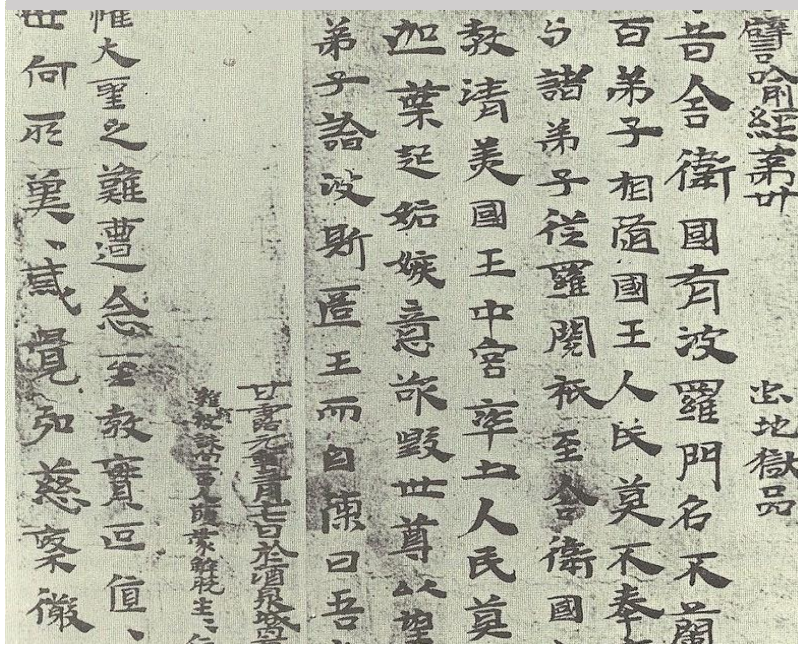 譬喻經第卅 出地獄品
昔舍衛國有波羅門名不蘭
百弟子相隨國王人民莫不奉
与諸弟子從羅閱祇至舍衛國
教清美國王中宮率土人民莫
迦葉起妬嫉意欲毀世尊以望
弟子詣波斯匿王而自陳曰吾
甘露元年三月十七日於酒泉城內
雜類被誅向二百人願蒙解脫生〻
惟大聖之難遭念至教實叵值、
世何所冀、咸覺知慈